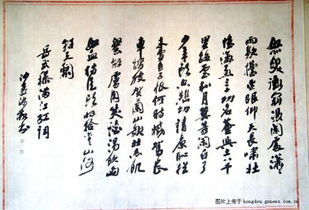 怒髮衝冠憑闌處瀟
雨歇擡望眼仰天長嘯壯
懷激烈三十功名塵與土八千
里路雲和月莫等閒白了
少年頭空悲切靖康恥猶
未雪臣子恨何時滅駕長
車踏破賀蘭山缺壯志飢
餐胡虜肉笑談渴飲匈
奴血待從頭收拾舊山河
朝天闕
岳武穆滿江紅詞
沙孟海書
图片上传于 hongdou.gxnews.com.cn